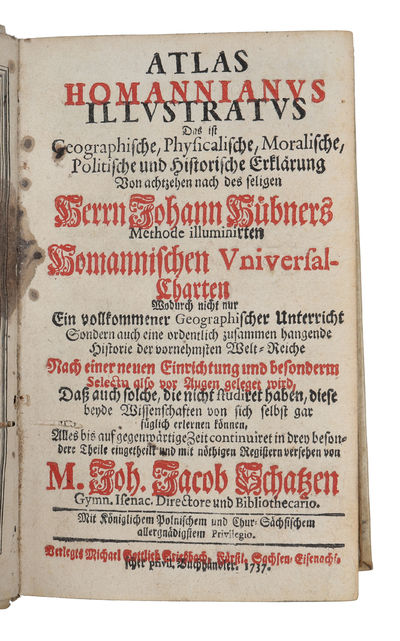 ATLAS
HOMANNIANVS
ILLVSTRATVS
Das ist
Geographische, Physicalische, Moralische,
Politische und Historische Erklärung
Von achtzehen nach des seligen
Herrn Johann Hübners
Methode illuminirten
Homannischen Vniversal-
Charten
Wodurch nicht nur
Ein vollkommener Geographischer Unterricht
Sondern auch eine ordentlich zusammen hangende
Historie der vornehmsten Welt-Reiche
Nach einer neuen Einrichtung und besonderm
Selectu also vor Augen geleget wird,
Daß auch solche, die nicht studiret haben, diese
beyde Wissenschaften von sich selbst gar
füglich erlernen können,
Alles bis auf gegenwärtige Zeit continuiret in drey beson-
dere Theile eingetheilt und mit nöthigen Registern versehen von
M. Joh. Jacob Schatzen
Gymn. Isenac. Directore und Bibliothecario.
Mit Königlichem Polnischem und Chur-Sächsischem
allergnädigstem Privilegio.
Verlegts Michael Gottlieb Griesbach, Fürstl. Sachsen-Eisenachi-
scher privil. Buchhändler. 1737.